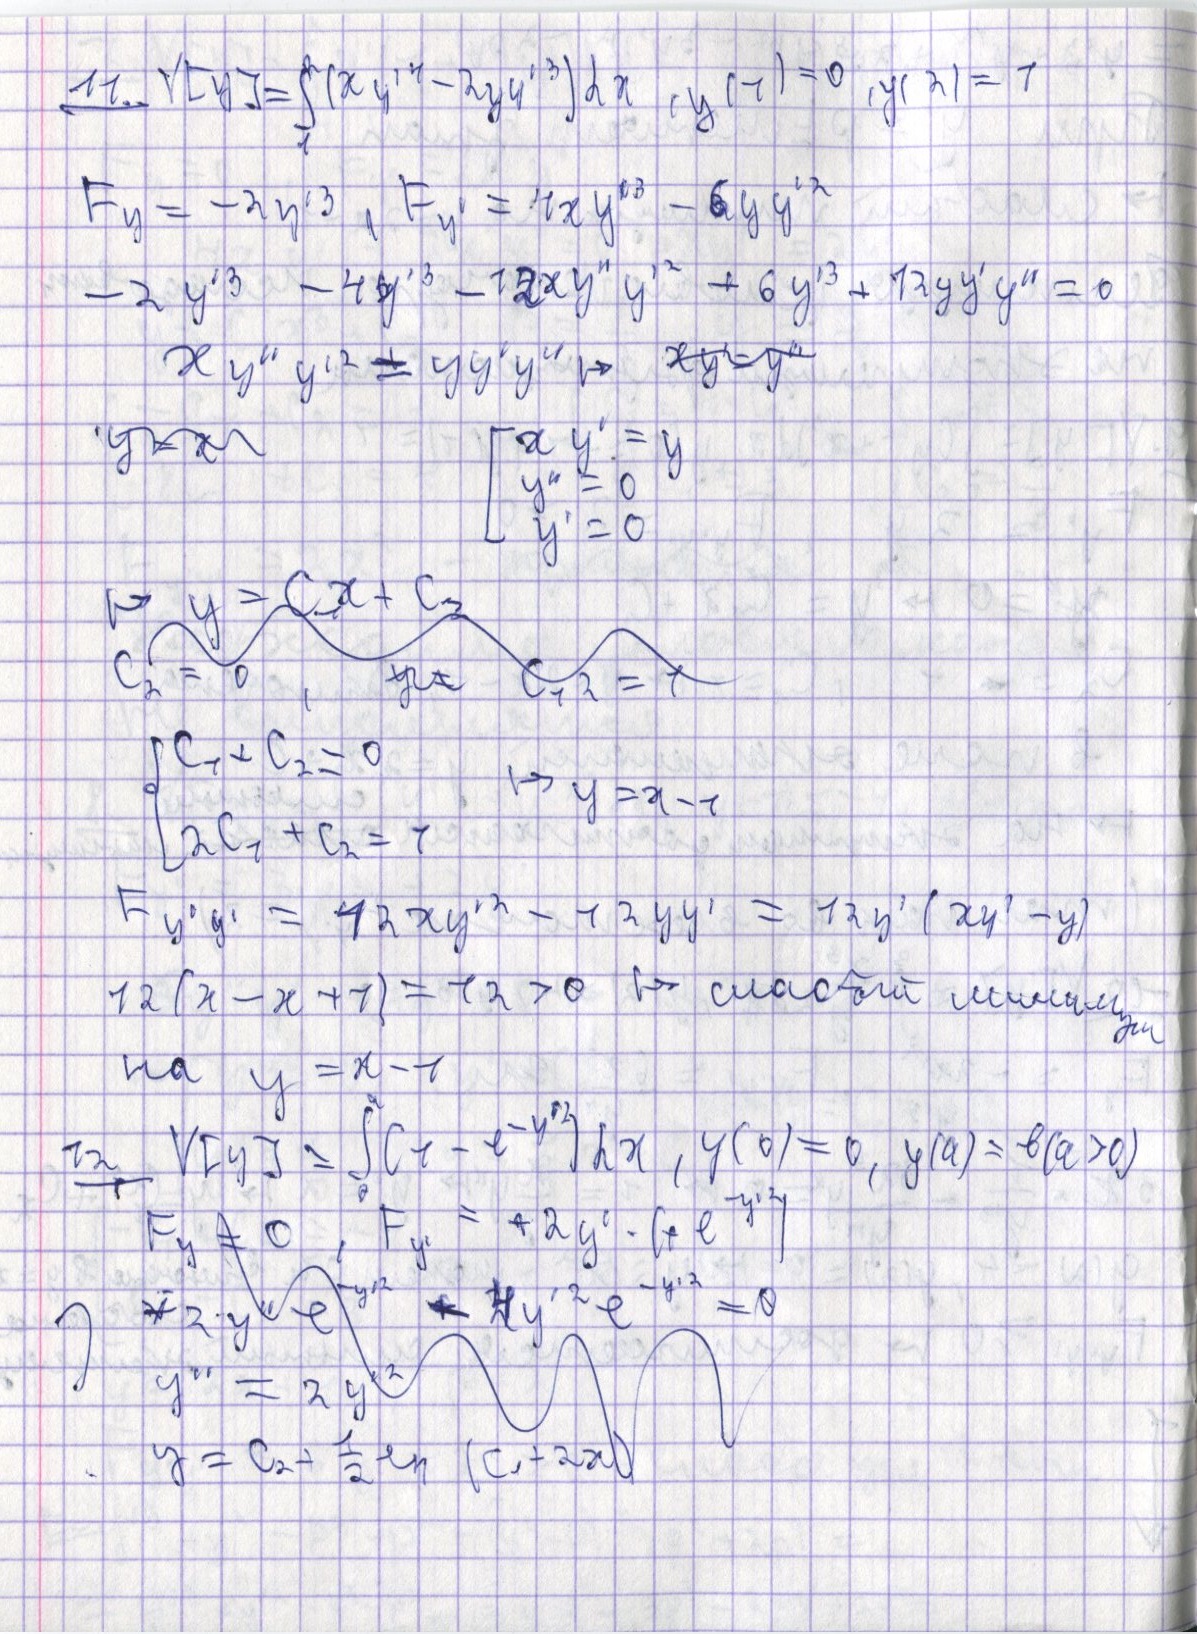 11. V[y] = ∫₁² (xy'⁴ - 2yy'³)dx, y(1) = 0, y(2) = 1
F_y = -2y'³, F_y' = 4xy'³ - 6yy'²
-2y'³ - 4y'³ - 12xy''y'² + 6y'³ + 12yy'y'' = 0
xy''y'² = yy'y'' ↦ xy' = y''
y = x
[ xy' = y
y'' = 0
y' = 0
↦ y = C₁x + C₂
C₂ = 0, y = C₁2 = 1
{ C₁ + C₂ = 0
↦ y = x - 1
2C₁ + C₂ = 1
F_y'y' = 12xy'² - 12yy' = 12y'(xy' - y)
12(x - x + 1) = 12 > 0 ↦ слабый минимум
на y = x - 1
12. V[y] = ∫₀ᵃ (1 - e^{-y'²})dx, y(0) = 0, y(a) = b (a > 0)
F_y = 0, F_y' = +2y' · (+e^{-y'²})
2y'' e^{-y'²} - 4y'² e^{-y'²} = 0
y'' = 2y'²
y = C₂ + 1/2 ln (C₁ + 2x)